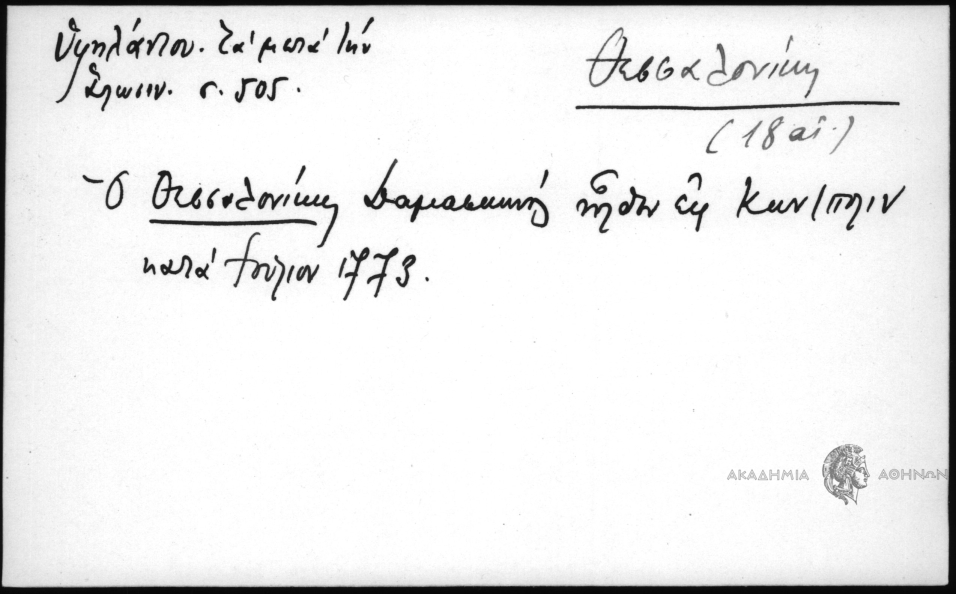 Ὑψηλάντου. Τὰ μετὰ τὴν
Ἅλωσιν. σ. 505.
Θεσσαλονίκη
(18 αἰ.)
- Ὁ Θεσσαλονίκης Δαμασκηνός ἦλθεν εἰς Κων/πολιν
κατά Ἰούλιον 1773.
ΑΚΑΔΗΜΙΑ ΑΘΗΝΩΝ